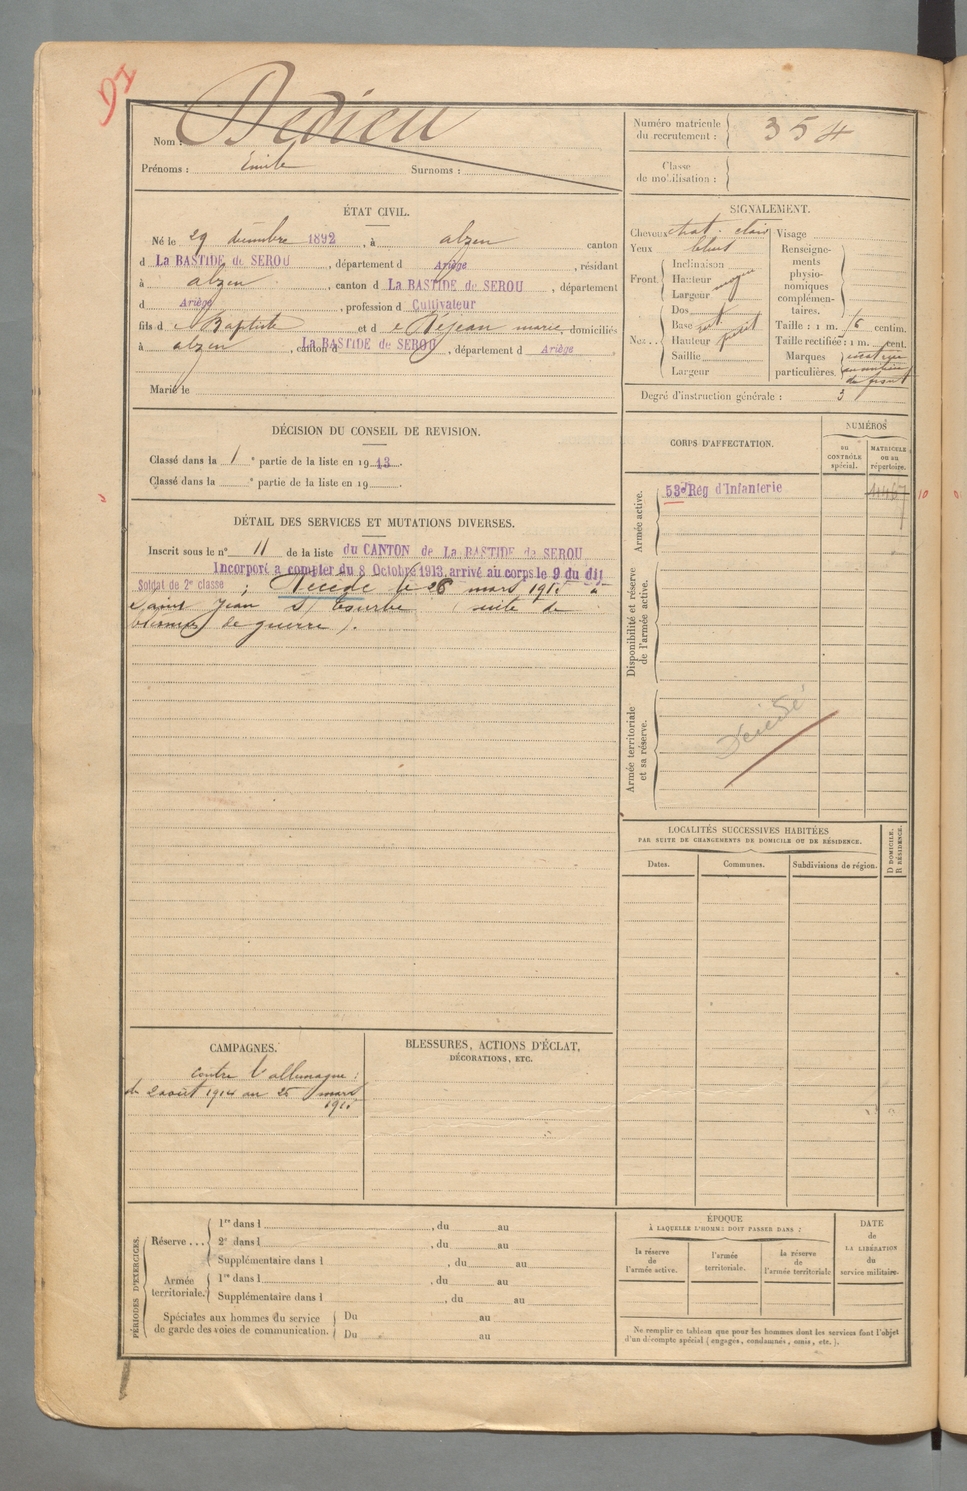 91
Nom : Dedieu
Prénoms : Émile Surnoms :
Numéro matricule du recrutement : 354
Classe de mobilisation :
ÉTAT CIVIL.
Né le 29 décembre 1892, à Alzen canton
d LA BASTIDE de SEROU, département d Ariège, résidant
à Alzen, canton d LA BASTIDE de SEROU, département
d Ariège, profession d Cultivateur
fils d e Baptiste et d e Réjean Marie, domiciliés
à Alzen, canton d LA BASTIDE de SEROU, département d Ariège,
Marié le
SIGNALEMENT.
Cheveux chat. clair
Yeux bleus
Front.
Inclinaison
Hauteur moyen
Largeur
Nez..
Dos
Base
Hauteur petit
Saillie
Largeur
Visage
Renseigne-
ments
physio-
nomiques
complémen-
taires.
Taille : 1 m. 6 centim.
Taille rectifiée : 1 m. cent.
Marques
particulières.
cicatrice
au milieu
du front
Degré d'instruction générale : 3
DÉCISION DU CONSEIL DE REVISION.
Classé dans la 1 e partie de la liste en 1913.
Classé dans la e partie de la liste en 19 .
CORPS D'AFFECTATION.
NUMÉROS
au CONTRÔLE spécial.
MATRICULE ou au répertoire.
Armée active.
53e Rég d'Infanterie
Disponibilité et réserve de l'armée active.
Armée territoriale et sa réserve.
Décédé
DÉTAIL DES SERVICES ET MUTATIONS DIVERSES.
Inscrit sous le n° 11 de la liste du CANTON de LA BASTIDE de SEROU
Incorporé à compter du 8 Octobre 1913, arrivé au corps le 9 du dit
Soldat de 2e classe ; Décédé le 26 mars 1915 à
Saint Jean s/ Tourbe (suite de
blessures de guerre).
LOCALITÉS SUCCESSIVES HABITÉES
PAR SUITE DE CHANGEMENTS DE DOMICILE OU DE RÉSIDENCE.
Dates.
Communes.
Subdivisions de région.
D DOMICILE.
R RÉSIDENCE.
CAMPAGNES.
Contre l'Allemagne :
du 2 août 1914 au 26 mars
1915
BLESSURES, ACTIONS D'ÉCLAT,
DÉCORATIONS, ETC.
PÉRIODES D'EXERCICES.
Réserve ...
1re dans l , du au
2e dans l , du au
Supplémentaire dans l , du au
Armée territoriale.
1re dans l , du au
Supplémentaire dans l , du au
Spéciales aux hommes du service
de garde des voies de communication.
Du au
Du au
ÉPOQUE
À LAQUELLE L'HOMME DOIT PASSER DANS :
la réserve de l'armée active.
l'armée territoriale.
la réserve de l'armée territoriale
DATE
de
LA LIBÉRATION
du
service militaire.
Ne remplir ce tableau que pour les hommes dont les services font l'objet
d'un décompte spécial (engagés, condamnés, omis, etc.).